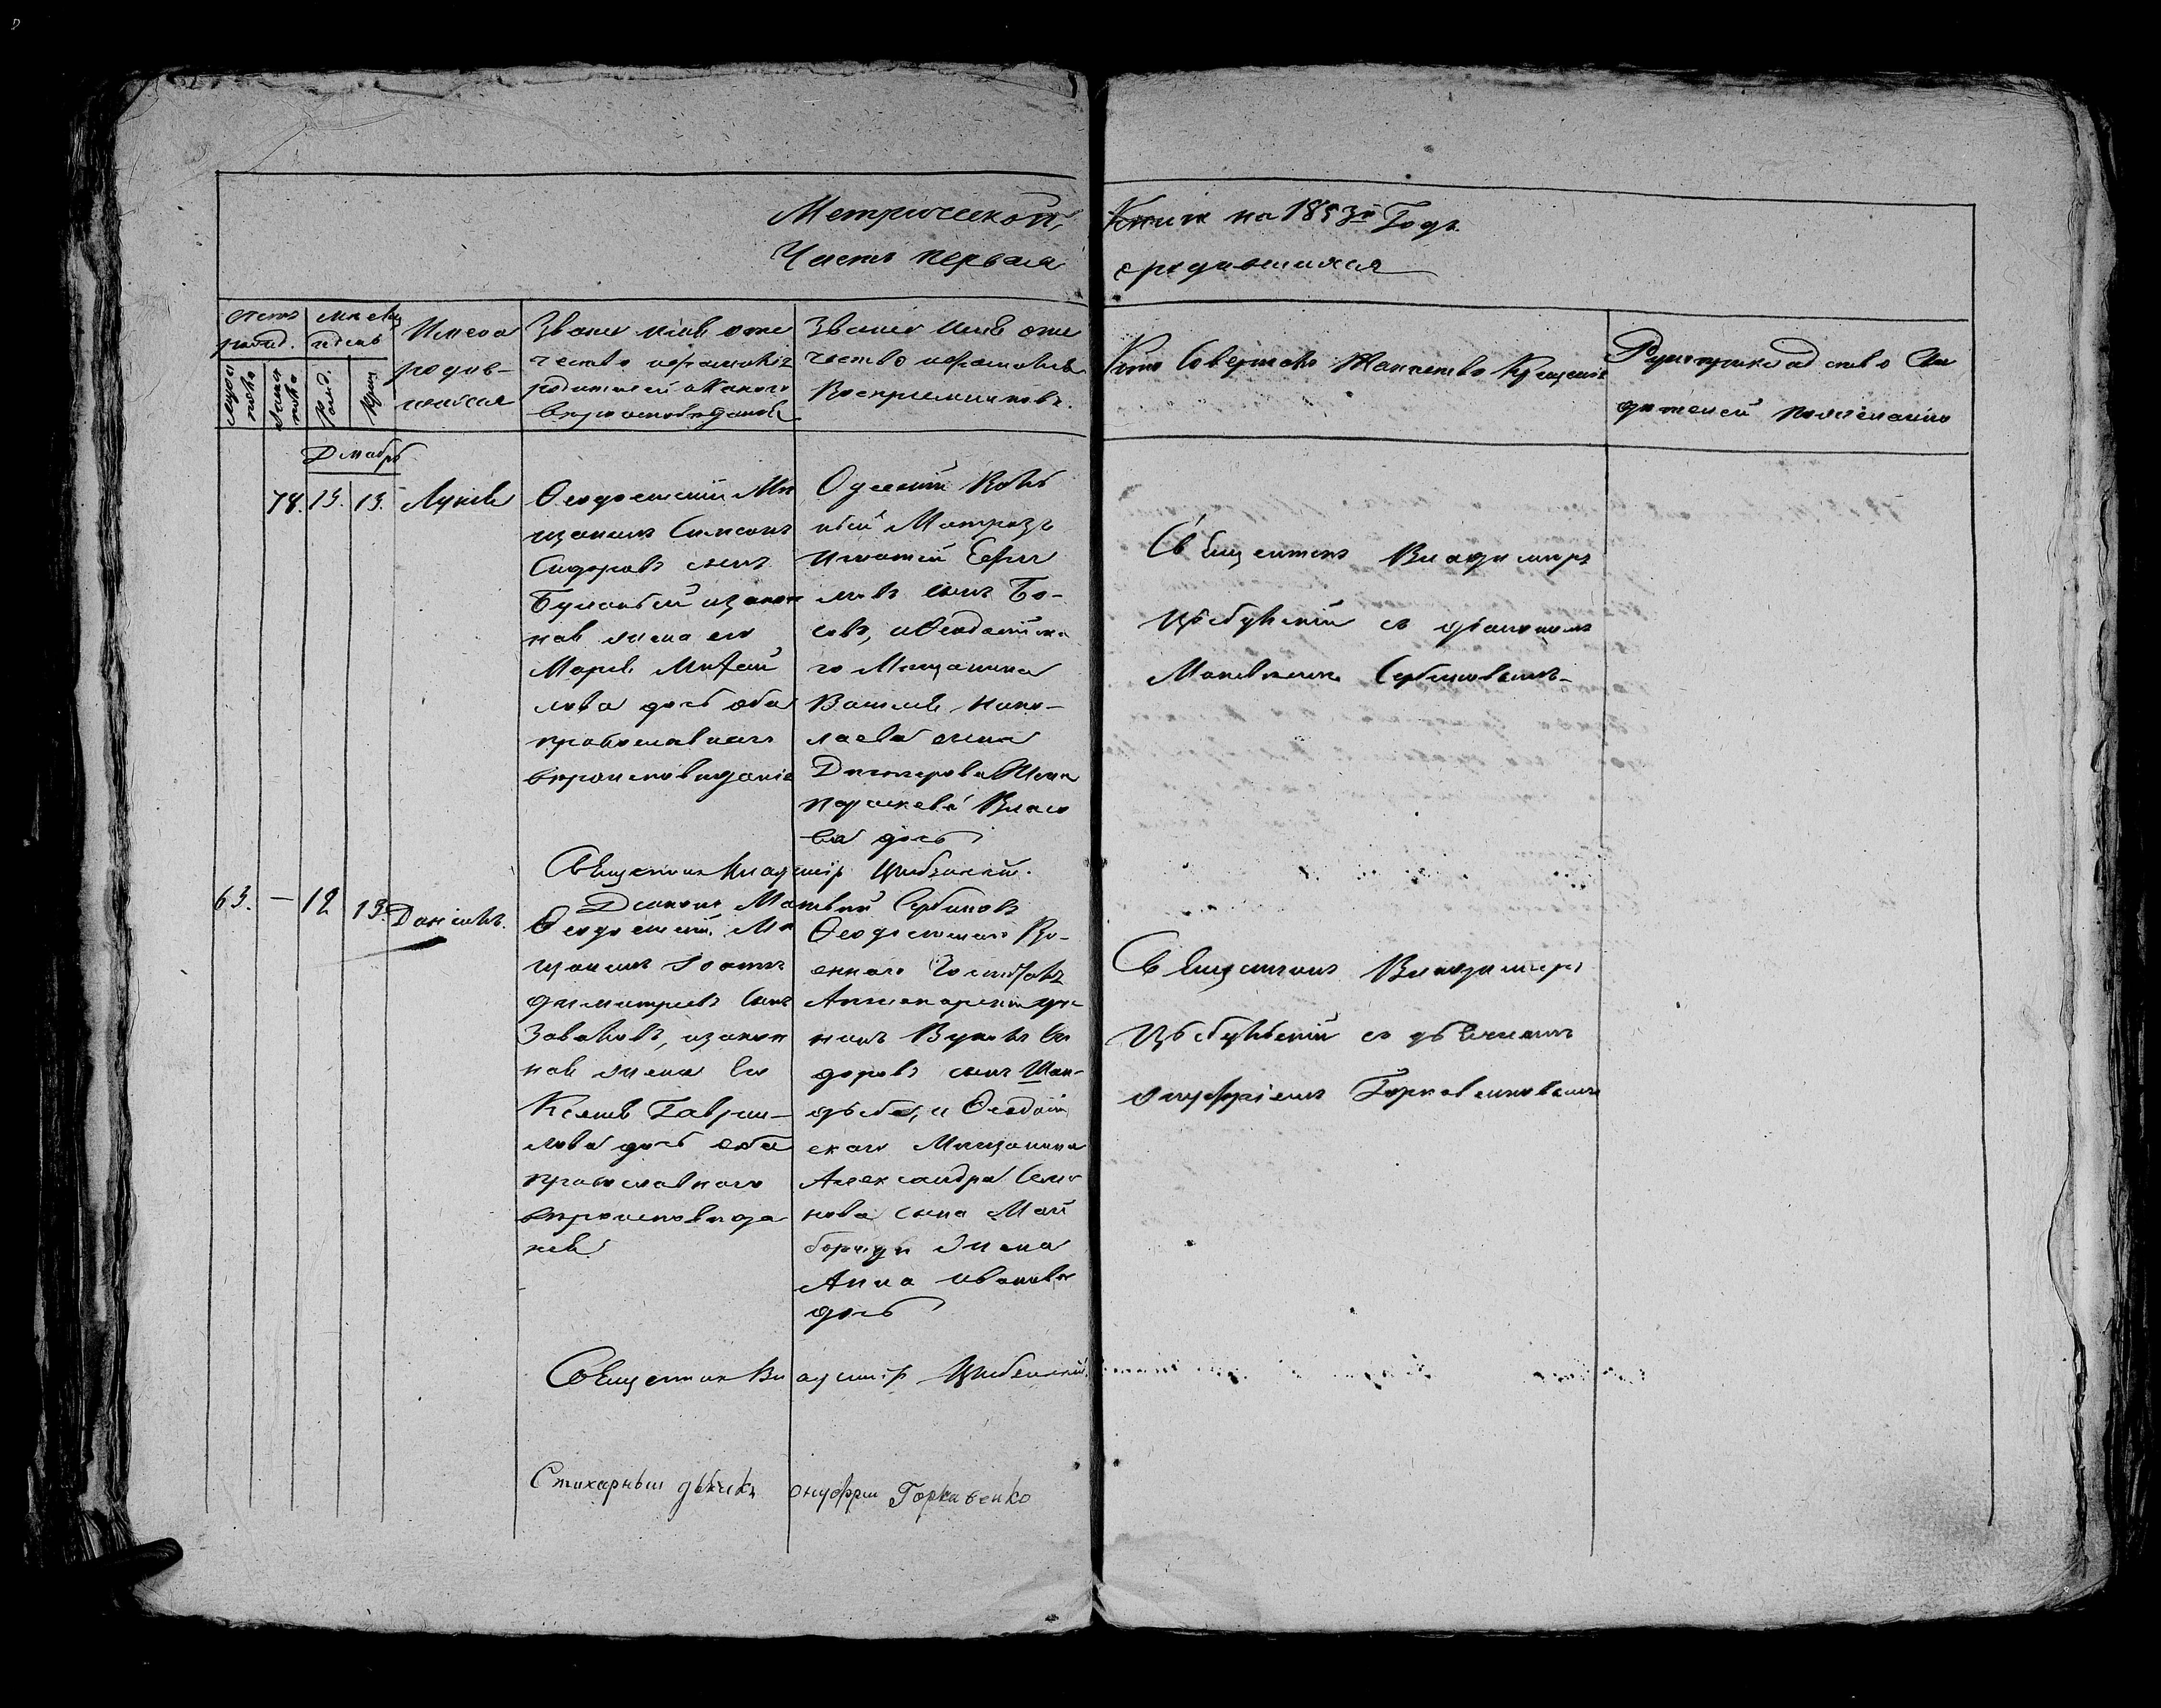 Метрической Книги на 1853й Годъ
Часть первая о родившихся
Счетъ родив.
Мужеска
Женска
месяцъ и день
Рожд.
Крещ.
Имена
родив-
шихся
Званіе имя отче
чество и фамилія
родителей и какого
вероисповеданія
Званіе имя отче
чество и фамилія
Воспріемниковъ.
Кто совершалъ Таинство Крещенія
Рукоприкладство Сви
детелей по желанію
Декабрь
78. 13. 13. Лукія
Ѳеодосійскій Ме
щанинъ Симеонъ
Сидоровъ сынъ
законная жена его
Марія Михай
лова дочь оба
православнаго
вероисповеданія
Одесскій
Матрозъ
Игнатій Ефи
мовъ сынъ Бо-
совъ, и Ѳеодосійска
го Мещанина
Василія Нико-
лаева сына
жена
Параскева Власо
ва дочь
Священникъ Владиміръ
Діаконъ Матвей Сербиновъ
Священникъ Владимиръ
съ діакономъ
Матвеемъ Сербиновымъ
63. — 12 13. Даніилъ.
Ѳеодосійскій Ме
щанинъ Іоаннъ
Димитріевъ сынъ
законная
жена его
Ксенія Гаври-
лова дочь оба
православнаго
вероисповеда
нія
Ѳеодосійскаго Во-
еннаго Госпиталя
Сы
доровъ сынъ Шан-
дыба, и Ѳеодосій
скаго Мещанина
Александра Семе
нова сына Май
бороды жена
Анна Иванова
дочь
Священникъ Владимиръ
съ дьячкомъ
Онуфріемъ Горкавенковымъ
Священникъ Владиміръ
Стихарный дьячекъ Онуфрій Горкавенко